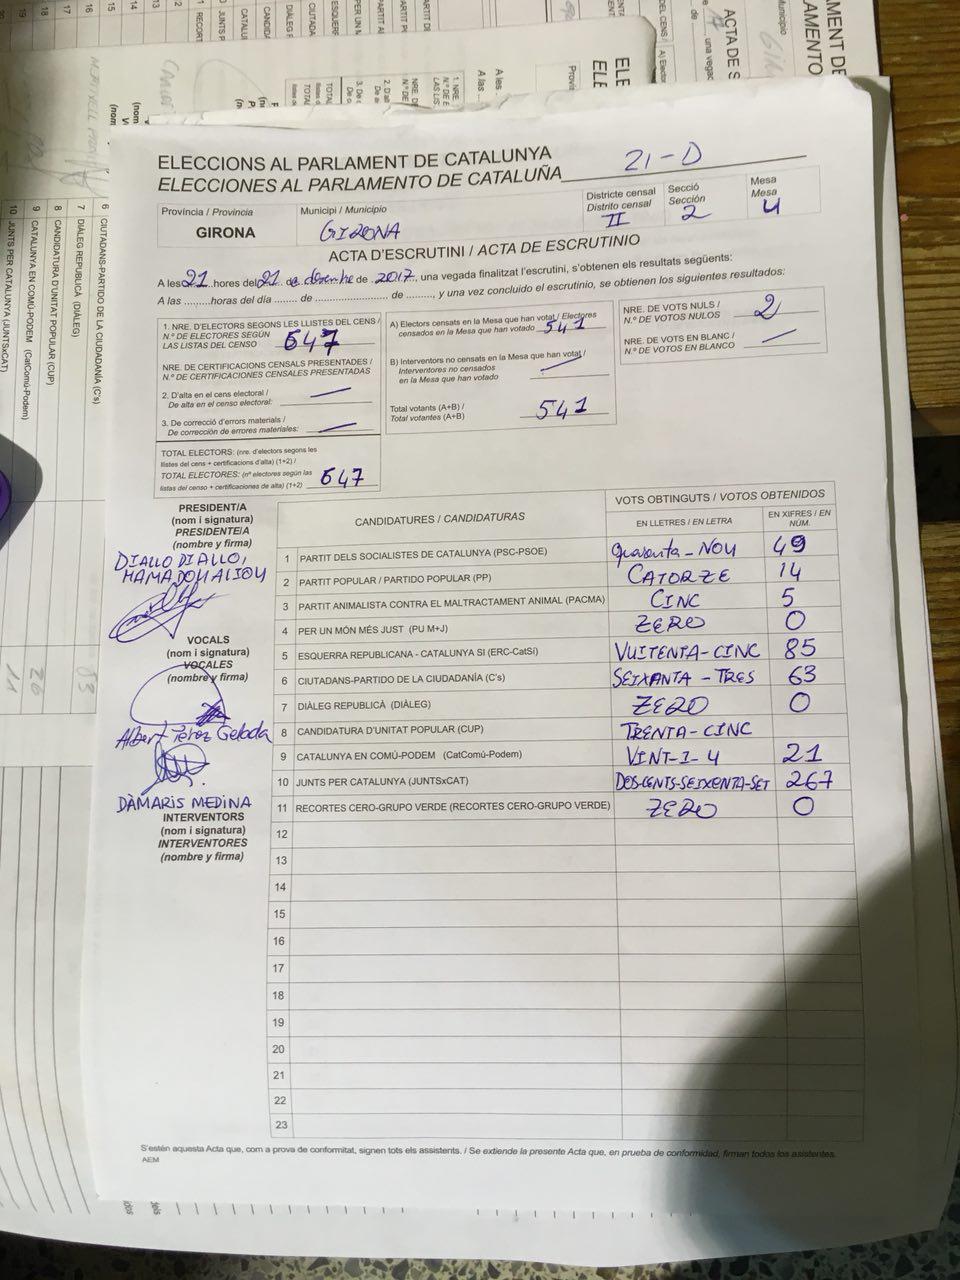 ELECCIONS AL PARLAMENT DE CATALUNYA
ELECCIONES AL PARLAMENTO DE CATALUÑA 21-D
Província / Provincia
GIRONA
Municipi / Municipio
GIRONA
Districte censal
Distrito censal
II
Secció
Sección
2
Mesa
Mesa
4
ACTA D'ESCRUTINI / ACTA DE ESCRUTINIO
A les 21 hores del 21 de desembre de 2017, una vegada finalitzat l'escrutini, s'obtenen els resultats següents:
A las .........horas del día ....... de ........................ de ........, y una vez concluido el escrutinio, se obtienen los siguientes resultados:
1. NRE. D'ELECTORS SEGONS LES LLISTES DEL CENS /
N.º DE ELECTORES SEGÚN
LAS LISTAS DEL CENSO 647
NRE. DE CERTIFICACIONS CENSALS PRESENTADES /
N.º DE CERTIFICACIONES CENSALES PRESENTADAS
2. D'alta en el cens electoral /
De alta en el censo electoral: —
3. De correcció d'errors materials /
De corrección de errores materiales: —
TOTAL ELECTORS: (nre. d'electors segons les
llistes del cens + certificacions d'alta) (1+2) /
TOTAL ELECTORES: (nº electores según las
listas del censo + certificaciones de alta) (1+2) 647
A) Electors censats en la Mesa que han votat / Electores
censados en la Mesa que han votado 541
B) Interventors no censats en la Mesa que han votat /
Interventores no censados
en la Mesa que han votado —
Total votants (A+B) /
Total votantes (A+B) 541
NRE. DE VOTS NULS /
N.º DE VOTOS NULOS 2
NRE. DE VOTS EN BLANC /
N.º DE VOTOS EN BLANCO —
PRESIDENT/A
(nom i signatura)
PRESIDENTE/A
(nombre y firma)
DIALLO DIALLO,
MAMADOU ALIOU
VOCALS
(nom i signatura)
VOCALES
(nombre y firma)
Albert Pérez Gelada
DÀMARIS MEDINA
INTERVENTORS
(nom i signatura)
INTERVENTORES
(nombre y firma)
CANDIDATURES / CANDIDATURAS
VOTS OBTINGUTS / VOTOS OBTENIDOS
EN LLETRES / EN LETRA
EN XIFRES / EN
NÚM.
1 PARTIT DELS SOCIALISTES DE CATALUNYA (PSC-PSOE) quaranta-NOU 49
2 PARTIT POPULAR / PARTIDO POPULAR (PP) CATORZE 14
3 PARTIT ANIMALISTA CONTRA EL MALTRACTAMENT ANIMAL (PACMA) CINC 5
4 PER UN MÓN MÉS JUST (PU M+J) ZERO 0
5 ESQUERRA REPUBLICANA - CATALUNYA SI (ERC-CatSí) VUITENTA-CINC 85
6 CIUTADANS-PARTIDO DE LA CIUDADANÍA (C's) SEIXANTA - TRES 63
7 DIÀLEG REPUBLICÀ (DIÀLEG) ZERO 0
8 CANDIDATURA D'UNITAT POPULAR (CUP) TRENTA-CINC
9 CATALUNYA EN COMÚ-PODEM (CatComú-Podem) VINT-I-4 21
10 JUNTS PER CATALUNYA (JUNTSxCAT) DOS-CENTS-SEIXENTA-SET 267
11 RECORTES CERO-GRUPO VERDE (RECORTES CERO-GRUPO VERDE) ZERO 0
12
13
14
15
16
17
18
19
20
21
22
23
S'estén aquesta Acta que, com a prova de conformitat, signen tots els assistents. / Se extiende la presente Acta que, en prueba de conformidad, firman todos los asistentes.
AEM
6 CIUTADANS-PARTIDO DE LA CIUDADANÍA (C's)
7 DIÀLEG REPUBLICÀ (DIÀLEG)
8 CANDIDATURA D'UNITAT POPULAR (CUP)
9 CATALUNYA EN COMÚ-PODEM (CatComú-Podem)
10 JUNTS PER CATALUNYA (JUNTSxCAT)